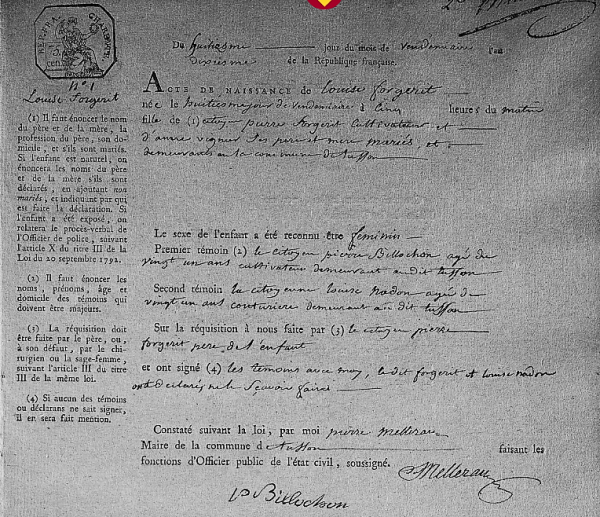 REP. FRA.
CHARENTE
5
cen.
N.° 1
Louise Forgerit
(1) Il faut énoncer le nom
du père et de la mère, la
profession du père, son do-
micile, et s'ils sont mariés.
Si l'enfant est naturel, on
énoncera les noms du père
et de la mère s'ils sont
déclarés, en ajoutant non
mariés, et indiquant par qui
est faite la déclaration. Si
l'enfant a été exposé, on
relatera le procès-verbal de
l'Officier de police, suivant
l'article X du titre III de la
Loi du 20 septembre 1792.
(2) Il faut énoncer les
noms, prénoms, âge et
domicile des témoins qui
doivent être majeurs.
(3) La réquisition doit
être faite par le père, ou,
à son défaut, par le chi-
rurgien ou la sage-femme,
suivant l'article III du titre
III de la même loi.
(4) Si aucun des témoins
ou déclarans ne sait signer,
il en sera fait mention.
Du huitiesme jour du mois de vendemiaire l'an
dixiesme de la République française.
ACTE DE NAISSANCE de louise forgerit
née le huitiesme jour de vendemiaire à cinq heures du matin
fille de (1) citoy. pierre forgerit cultivateur et
d'anne vignes ses pere et mere mariés, et
demeurants en la commune de tusson
Le sexe de l'enfant a été reconnu être feminin
Premier témoin (2) le citoyen pierre Billochon agé de
vingt un ans cultivateur demeurant audit tusson
Second témoin la citoyenne louise nadon agée de
vingt un ans couturiere demeurant au dit tusson
Sur la réquisition à nous faite par (3) le citoyen pierre
forgerit pere de l'enfant
et ont signé (4) les temoins avec moy, le dit forgerit et louise nadon
ont declarés ne le scavoir faire
Constaté suivant la loi, par moi pierre mellerau
Maire de la commune de tusson faisant les
fonctions d'Officier public de l'état civil, soussigné.
Mellerau
P Billochon